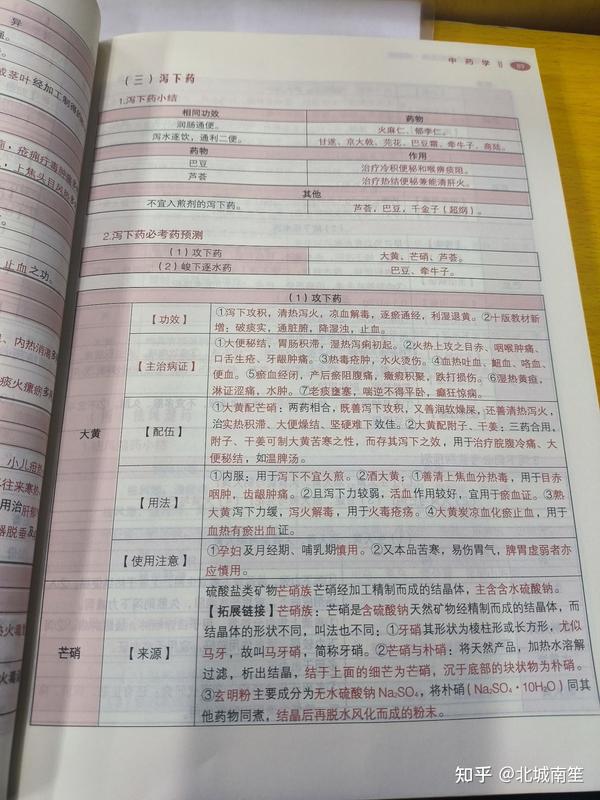 异
强。
或茎叶经加工制得的
痛,疮痈疔毒肿痛
,上焦头目风热
止血之功。
、内热消毒多
痰火瘰疬多
小儿疳热
往来寒热
用治肝郁
器脱垂及
热火毒
尽火毒
中药学 II
(三)泻下药
1.泻下药小结
相同功效 药物
润肠通便。 火麻仁、郁李仁。
泻水逐饮,通利二便。 甘遂、京大戟、芫花、巴豆霜、牵牛子、商陆。
药物 作用
巴豆 治疗冷积便秘和喉痹痰阻。
芦荟 治疗热结便秘兼能清肝火。
其他
不宜入煎剂的泻下药。 芦荟,巴豆,千金子(超纲)。
2.泻下药必考药预测
(1)攻下药 大黄、芒硝、芦荟。
(2)峻下逐水药 巴豆、牵牛子。
(1)攻下药
大黄
【功效】
①泻下攻积,清热泻火,凉血解毒,逐瘀通经,利湿退黄。②十版教材新
增:破痰实,通脏腑,降湿浊,止血。
【主治病证】
①大便秘结,胃肠积滞,湿热泻痢初起。②火热上攻之目赤、咽喉肿痛、
口舌生疮、牙龈肿痛。③热毒疮肿,水火烫伤。④血热吐血、衄血、咯血、
便血。⑤瘀血经闭,产后瘀阻腹痛,癥瘕积聚,跌打损伤。⑥湿热黄疸,
淋证涩痛,水肿。⑦老痰壅塞,喘逆不得平卧,癫狂惊痫。
【配伍】
①大黄配芒硝:两药相合,既善泻下攻积,又善润软燥屎,还善清热泻火,
治实热积滞、大便燥结、坚硬难下效佳。②大黄配附子、干姜:三药合用,
附子、干姜可制大黄苦寒之性,而存其泻下之效,用于治疗脘腹冷痛、大
便秘结,如温脾汤。
【用法】
①内服:用于泻下不宜久煎。②酒大黄:①善清上焦血分热毒,用于目赤
咽肿,齿龈肿痛。②且泻下力较弱,活血作用较好,宜用于瘀血证。③熟
大黄泻下力缓,泻火解毒,用于火毒疮疡。④大黄炭凉血化瘀止血,用于
血热有瘀出血证。
【使用注意】
①孕妇及月经期、哺乳期慎用。②又本品苦寒,易伤胃气,脾胃虚弱者亦
应慎用。
芒硝
【来源】
硫酸盐类矿物芒硝族芒硝经加工精制而成的结晶体,主含含水硫酸钠。
【拓展链接】芒硝族:芒硝是含硫酸钠天然矿物经精制而成的结晶体,而
结晶体的形状不同,叫法也不同:①牙硝其形状为棱柱形或长方形,尤似
马牙,故叫马牙硝,简称牙硝。②芒硝与朴硝:将天然产品,加热水溶解
过滤,析出结晶,结于上面的细芒为芒硝,沉于底部的块状物为朴硝。
③玄明粉主要成分为无水硫酸钠Na₂SO₄,将朴硝(Na₂SO₄·10H₂O)同其
他药物同煮,结晶后再脱水风化而成的粉末。
知乎 @北城南笙